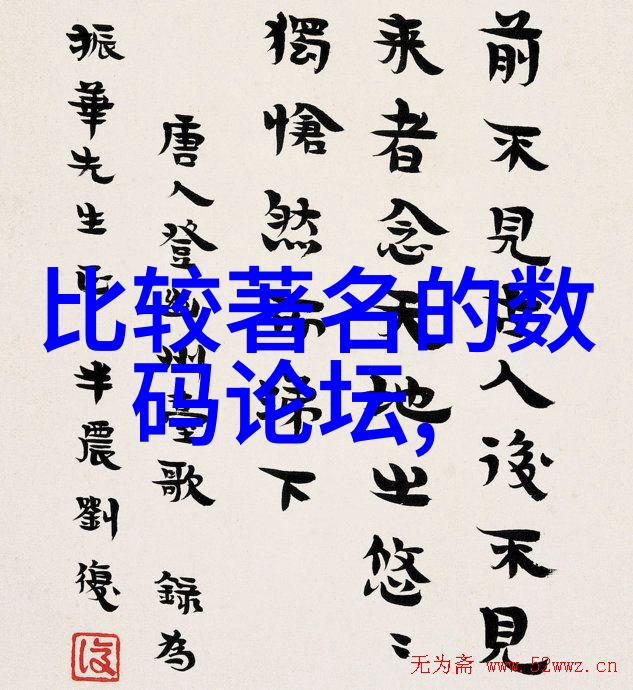 前不見古人後不見
来者念天地之悠〻
獨愴然而涕下
唐人登幽州臺歌 錄為
振華先生正 半農劉復
復
比较著名的数
码论坛,
无为斋 www.52wwz.cn